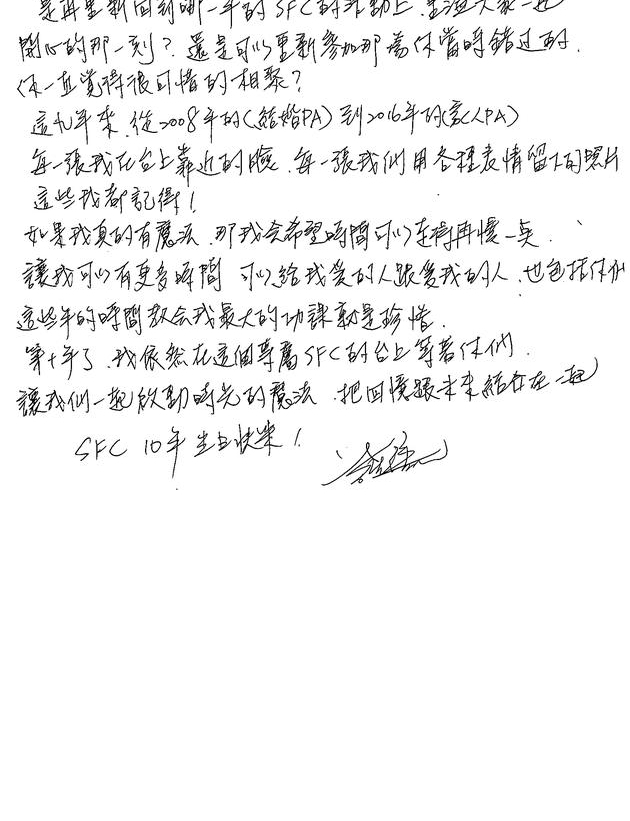 是再重新回到哪一年的SFC的活動上,重溫大家一起
開心的那一刻?還是可以重新參加那為你當時錯過的,
你一直覺得很可惜的相聚?
這九年來,從2008年的(結婚PA)到2016年的(家人PA)
每一張我在台上靠近的臉,每一張我們用各種表情留下的照片
這些我都記得!
如果我真的有魔法,那我会希望時間可以走得再慢一點,
讓我可以有更多時間 可以給我愛的人跟愛我的人,也包括你們
這些年的時間教会我最大的功課就是珍惜.
第十年了,我依然在這個專屬SFC的台上等著你們.
讓我們一起啟動時光的魔法,把回憶跟未來結合在一起
SFC 10年生日快樂!